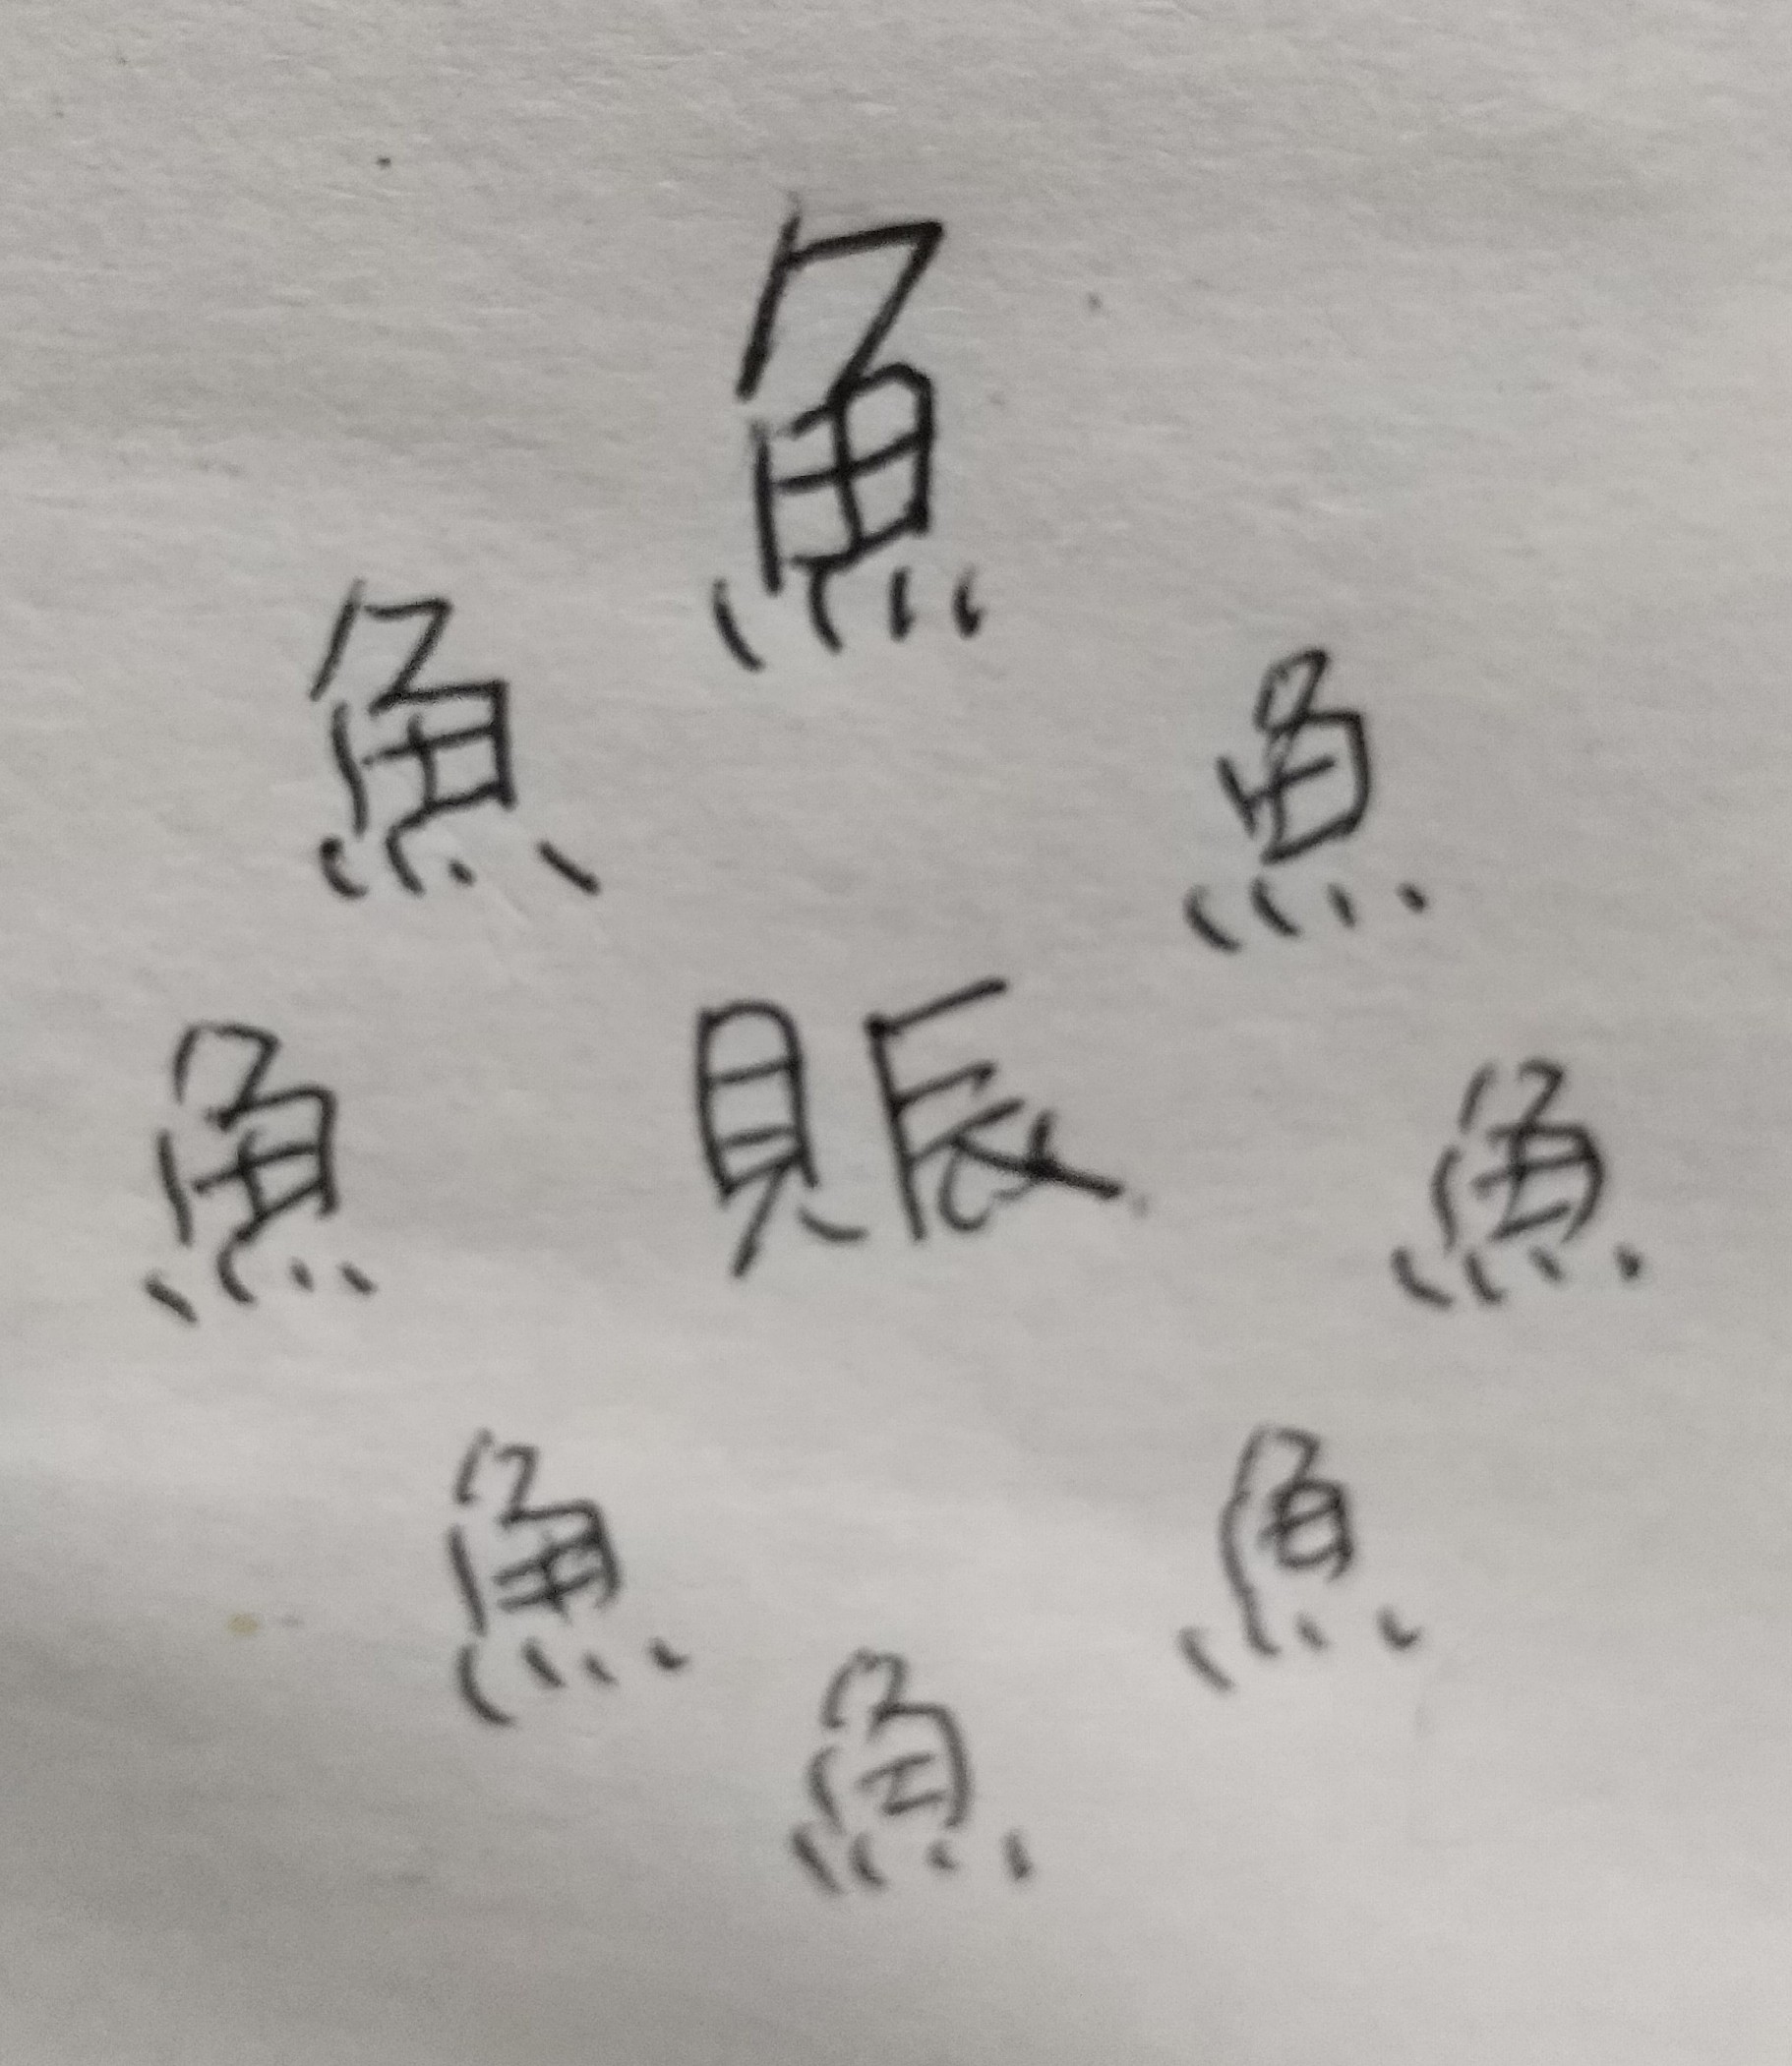 魚
魚 魚
魚 賑 魚
魚 魚
魚